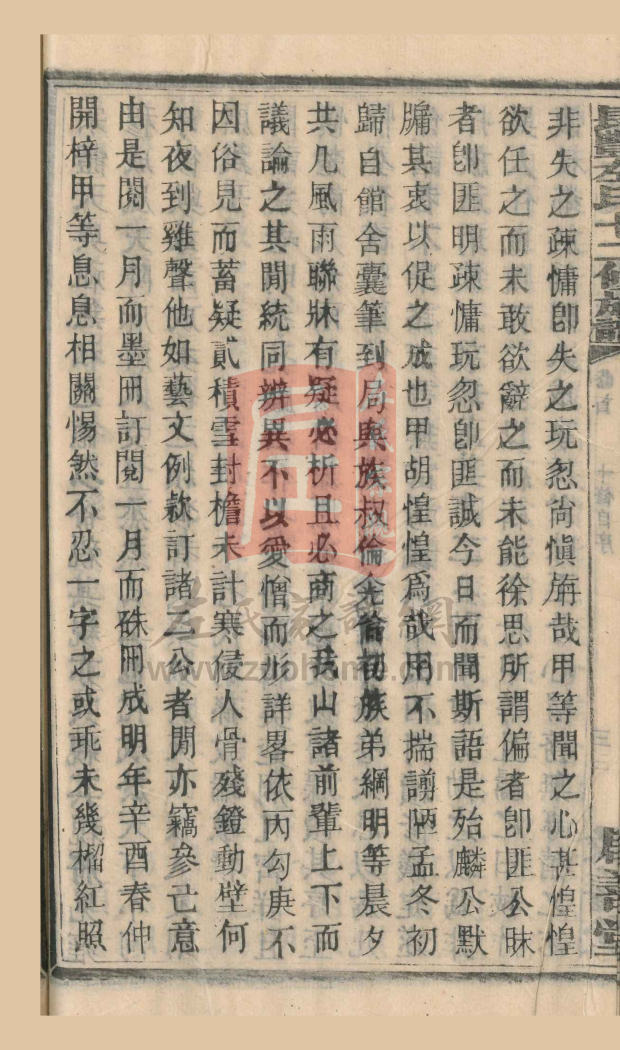 非失之疎慵卽失之玩忽尙愼旃哉甲等聞之心甚惶惶
欲任之而未敢欲辭之而未能徐思所謂偏者卽匪公昧
者卽匪明疎慵玩忽卽匪誠今日而聞斯語是殆麟公默
牖其衷以促之成也甲胡惶惶爲哉用不揣謭陋孟冬初
歸自館舍囊筆到局與族叔倫仝徜初族弟綱明等晨夕
共几風雨聯牀有疑必析且必商之我山諸前輩上下而
議論之其閒統同辨異不以愛憎而形詳畧依丙勾庚不
因俗見而蓄疑貳積雪封檐未計寒侵人骨殘鐙動壁何
知夜到雞聲他如藝文例款訂諸二公者閒亦竊參己意
由是閱一月而墨冊訂閱一月而硃冊成明年辛酉春仲
開梓甲等息息相關惕然不忍一字之或乖未幾榴紅照
左氏十修族譜
卷首
十修自序
三
左氏家譜網
www.zuohome.com